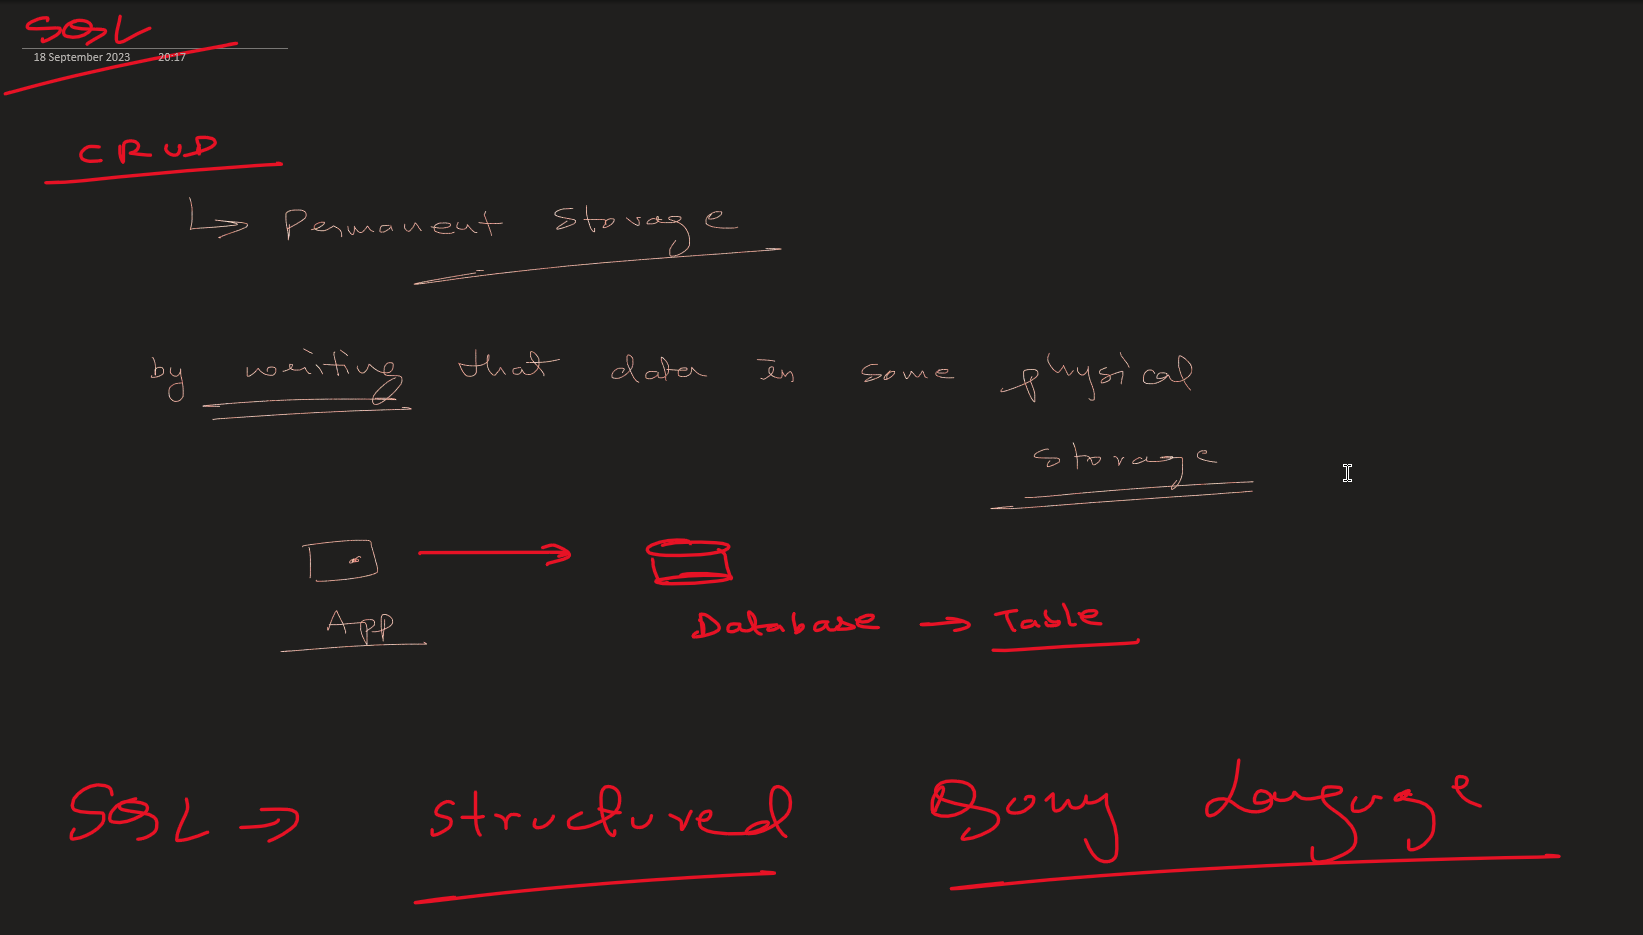 SQL
18 September 2023 20:17
CRUD
Permanent Storage
by writing that data in some physical
storage
App
Database → Table
SQL ⇒ Structured Query Language